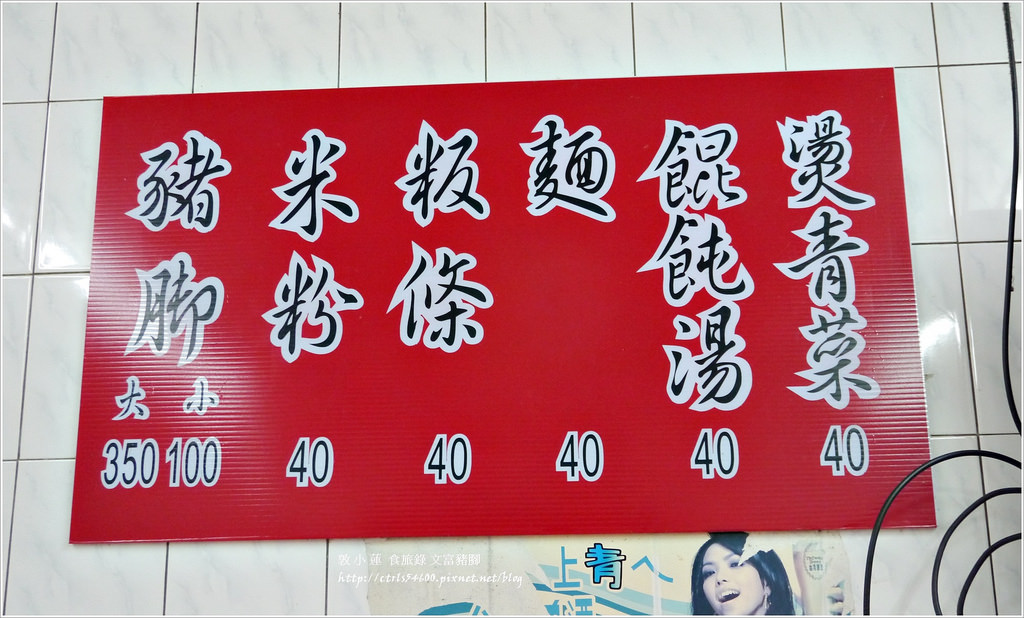 豬脚
大 小
350 100
米粉
40
粄條
40
麵
40
餛飩湯
40
燙青菜
40
敦小蓮 食旅錄 文富豬腳
http://ctrls54600.pixnet.net/blog
上青へ